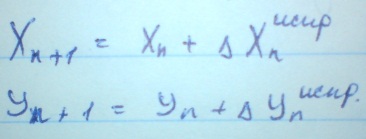 Xn+1 = Xn + Δ Xn испр
Yn+1 = Yn + Δ Yn испр.